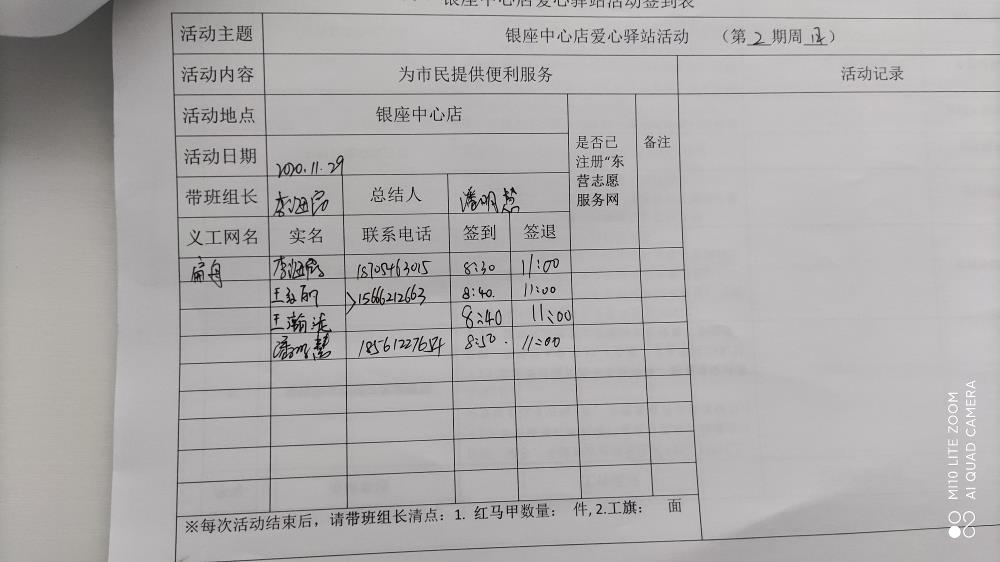 银座中心店爱心驿站活动签到表
活动主题 银座中心店爱心驿站活动 (第 2 期周 日)
活动内容 为市民提供便利服务 活动记录
活动地点 银座中心店
是否已注册“东营志愿服务网 备注
活动日期 2020.11.29
带班组长 总结人 潘明慧
义工网名 实名 联系电话 签到 签退
扁舟 18705463015 8:30 11:00
15666212663 8:40. 11:00
王瀚 8:40 11:00
潘明慧 8:50. 11:00
※每次活动结束后，请带班组长清点：1. 红马甲数量： 件, 2.工旗： 面
MI 10 LITE ZOOM
AI QUAD CAMERA